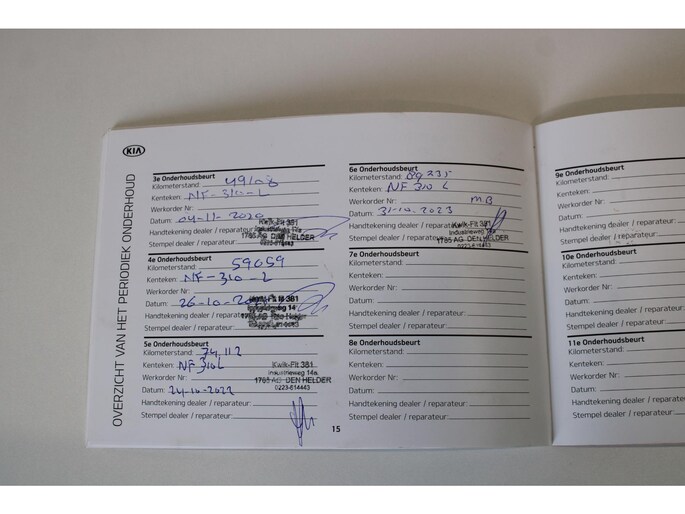 KIA
OVERZICHT VAN HET PERIODIEK ONDERHOUD
3e Onderhoudsbeurt
Kilometerstand:
Kenteken: NF-310-L
Werkorder Nr:
Datum: 04-11-2020
Handtekening dealer / reparateur:
Stempel dealer / reparateur:
Kwik-Fit 381
1785 AG DEN HELDER
4e Onderhoudsbeurt
Kilometerstand: 59059
Kenteken: NF-310-L
Werkorder Nr:
Datum: 26-10-
Handtekening dealer / reparateur:
Stempel dealer / reparateur:
5e Onderhoudsbeurt
Kilometerstand: 74112
Kenteken: NF 310L
Werkorder Nr:
Datum: 24-10-2022
Handtekening dealer / reparateur:
Stempel dealer / reparateur:
Kwik-Fit 381
Industrieweg 14a
DEN HELDER
0223-614443
6e Onderhoudsbeurt
Kilometerstand:
Kenteken: NF 310 L
Werkorder Nr: MB
Datum: 31-10-2023
Handtekening dealer / reparateur:
Stempel dealer / reparateur:
Kwik-Fit 381
Industrieweg 14a
DEN HELDER
7e Onderhoudsbeurt
Kilometerstand:
Kenteken:
Werkorder Nr:
Datum:
Handtekening dealer / reparateur:
Stempel dealer / reparateur:
8e Onderhoudsbeurt
Kilometerstand:
Kenteken:
Werkorder Nr:
Datum:
Handtekening dealer / reparateur:
Stempel dealer / reparateur:
15
9e Onderhoudsbeurt
Kilometerstand:
Kenteken:
Werkorder Nr:
Datum:
Handtekening dealer / reparateur:
Stempel dealer / reparateur:
10e Onderhoudsbeurt
Kilometerstand:
Kenteken:
Werkorder Nr:
Datum:
Handtekening dealer / reparateur:
Stempel dealer / reparateur:
11e Onderhoudsbeurt
Kilometerstand:
Kenteken:
Werkorder Nr:
Datum:
Handtekening dealer / reparateur:
Stempel dealer / reparateur: